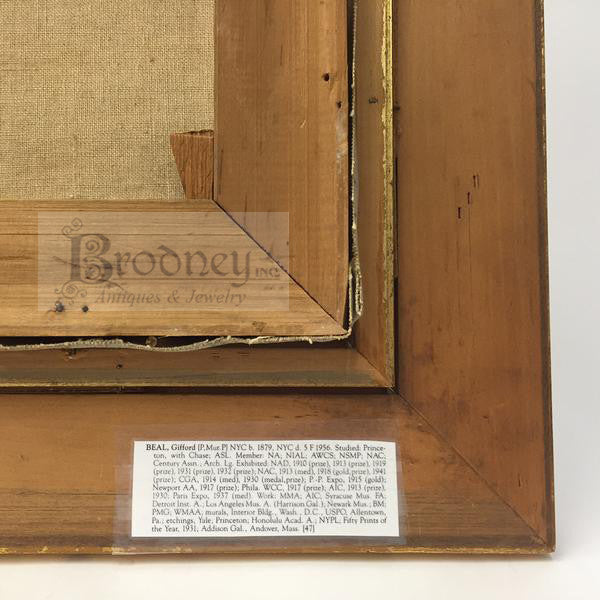 Brodney INC.
Antiques & Jewelry
BEAL, Gifford [P,Mur.P] NYC b. 1879, NYC d. 5 F 1956. Studied: Prince-
ton, with Chase; ASL. Member: NA; NIAL; AWCS; NSMP; NAC;
Century Assn.; Arch. Lg. Exhibited: NAD, 1910 (prize), 1913 (prize), 1919
(prize), 1931 (prize), 1932 (prize); NAC, 1913 (med), 1918 (gold,prize), 1941
(prize); CGA, 1914 (med), 1930 (medal,prize); P.-P. Expo, 1915 (gold);
Newport AA, 1917 (prize); Phila. WCC, 1917 (prize); AIC, 1913 (prize),
1930; Paris Expo, 1937 (med). Work: MMA; AIC; Syracuse Mus. FA;
Detroit Inst. A.; Los Angeles Mus. A. (Harrison Gal.); Newark Mus.; BM;
PMG; WMAA; murals, Interior Bldg., Wash., D.C., USPO, Allentown,
Pa.; etchings, Yale; Princeton; Honolulu Acad. A.; NYPL; Fifty Prints of
the Year, 1931; Addison Gal., Andover, Mass. [47]